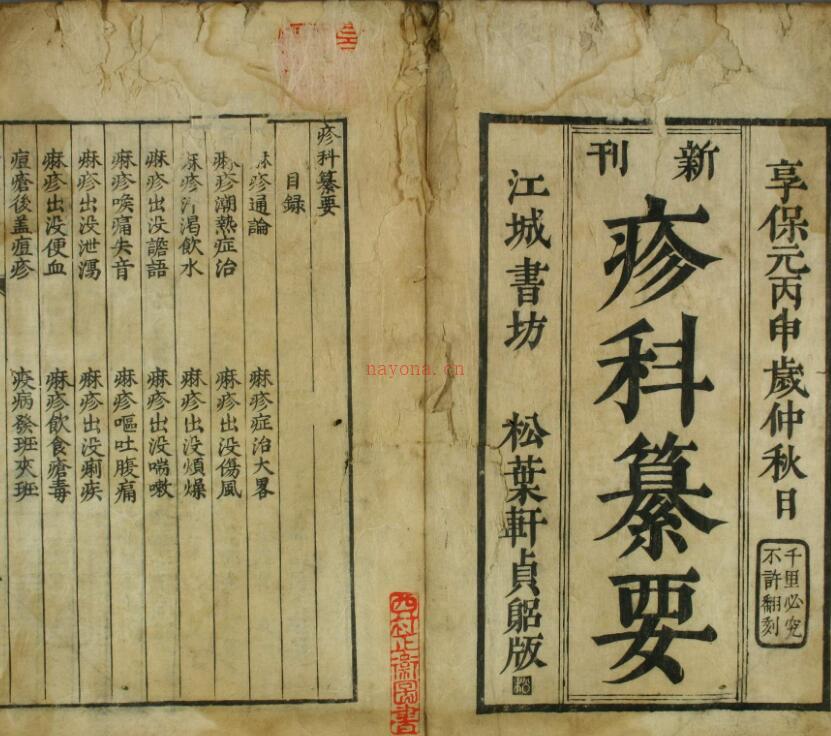 享保元丙申歲仲秋日
千里必究
不許翻刻
新刊
疹科纂要
江城書坊 松葉軒貞躬版
疹科纂要
目錄
麻疹通論 麻疹症治大畧
麻疹潮熱症治 麻疹出没傷風
麻疹 渴飲水 麻疹出没煩燥
麻疹出没譫語 麻疹出没喘嗽
麻疹喉痛失音 麻疹嘔吐腹痛
麻疹出没泄瀉 麻疹出没痢疾
麻疹出没便血 麻疹飲食瘡毒
痘瘡後蓋痘疹 疫病發班夾班
nayona.cn